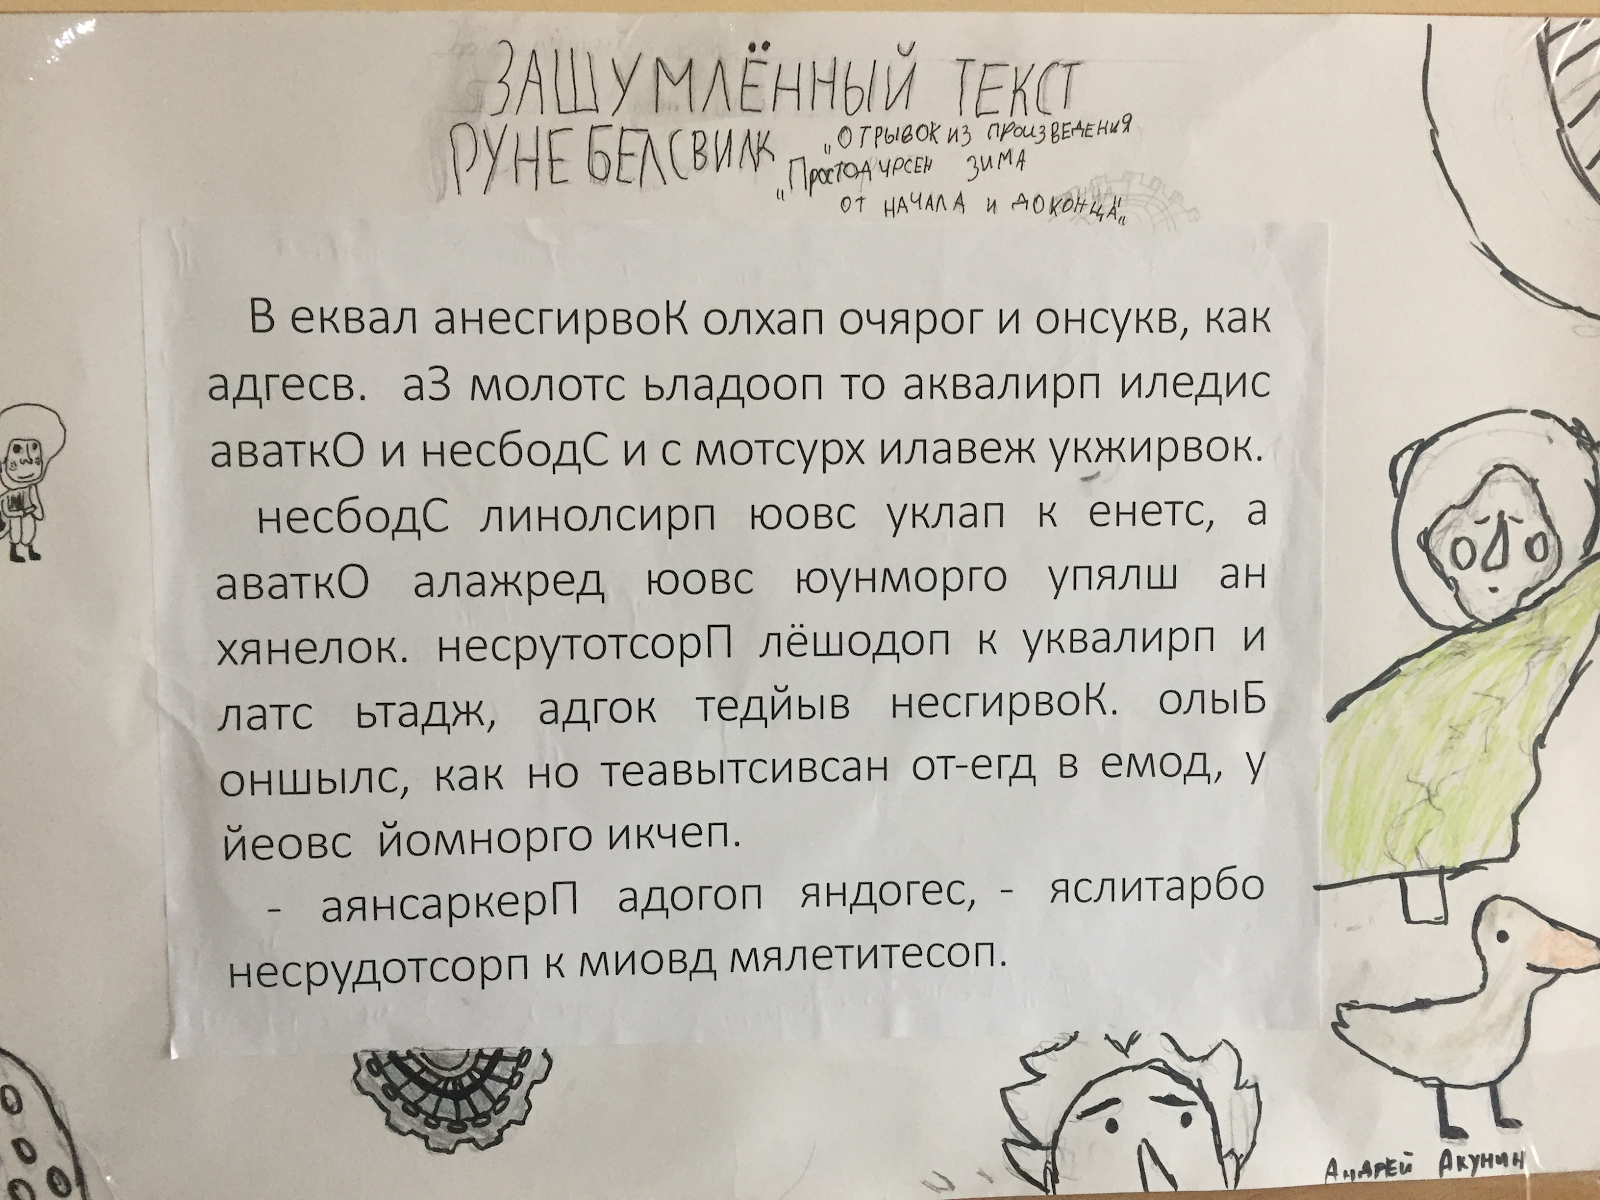 ЗАШУМЛЁННЫЙ ТЕКСТ
РУНЕ БЕЛСВИЛК „ОТРЫВОК ИЗ ПРОИЗВЕДЕНИЯ
„Простодурсен ЗИМА
ОТ НАЧАЛА И ДО КОНЦА"„
В еквал анесгирвоК олхап очярог и онсукв, как
адгесв. аЗ молотс ьладооп то аквалирп иледис
аваткО и несбодС и с мотсурх илавеж укжирвок.
несбодС линолсирп юовс уклап к енетс, а
аваткО алажред юовс юунморго упялш ан
хянелок. несрутотсорП лёшодоп к уквалирп и
латс ьтадж, адгок тедйыв несгирвоК. олыБ
оншылс, как но теавытсивсан от-егд в емод, у
йеовс йомнорго икчеп.
- аянсаркерП адогоп яндогес, - яслитарбо
несрудотсорп к миовд мялетитесоп.
АНДРЕЙ АКУНИН